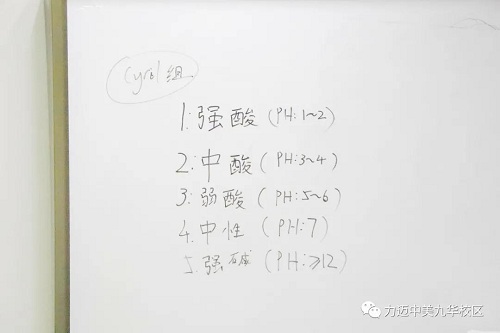 Cyrol组
1:强酸(PH:1~2)
2:中酸(PH:3~4)
3:弱酸(PH:5~6)
4.中性(PH:7)
5.强碱(PH:≥12)
力迈中美九华校区